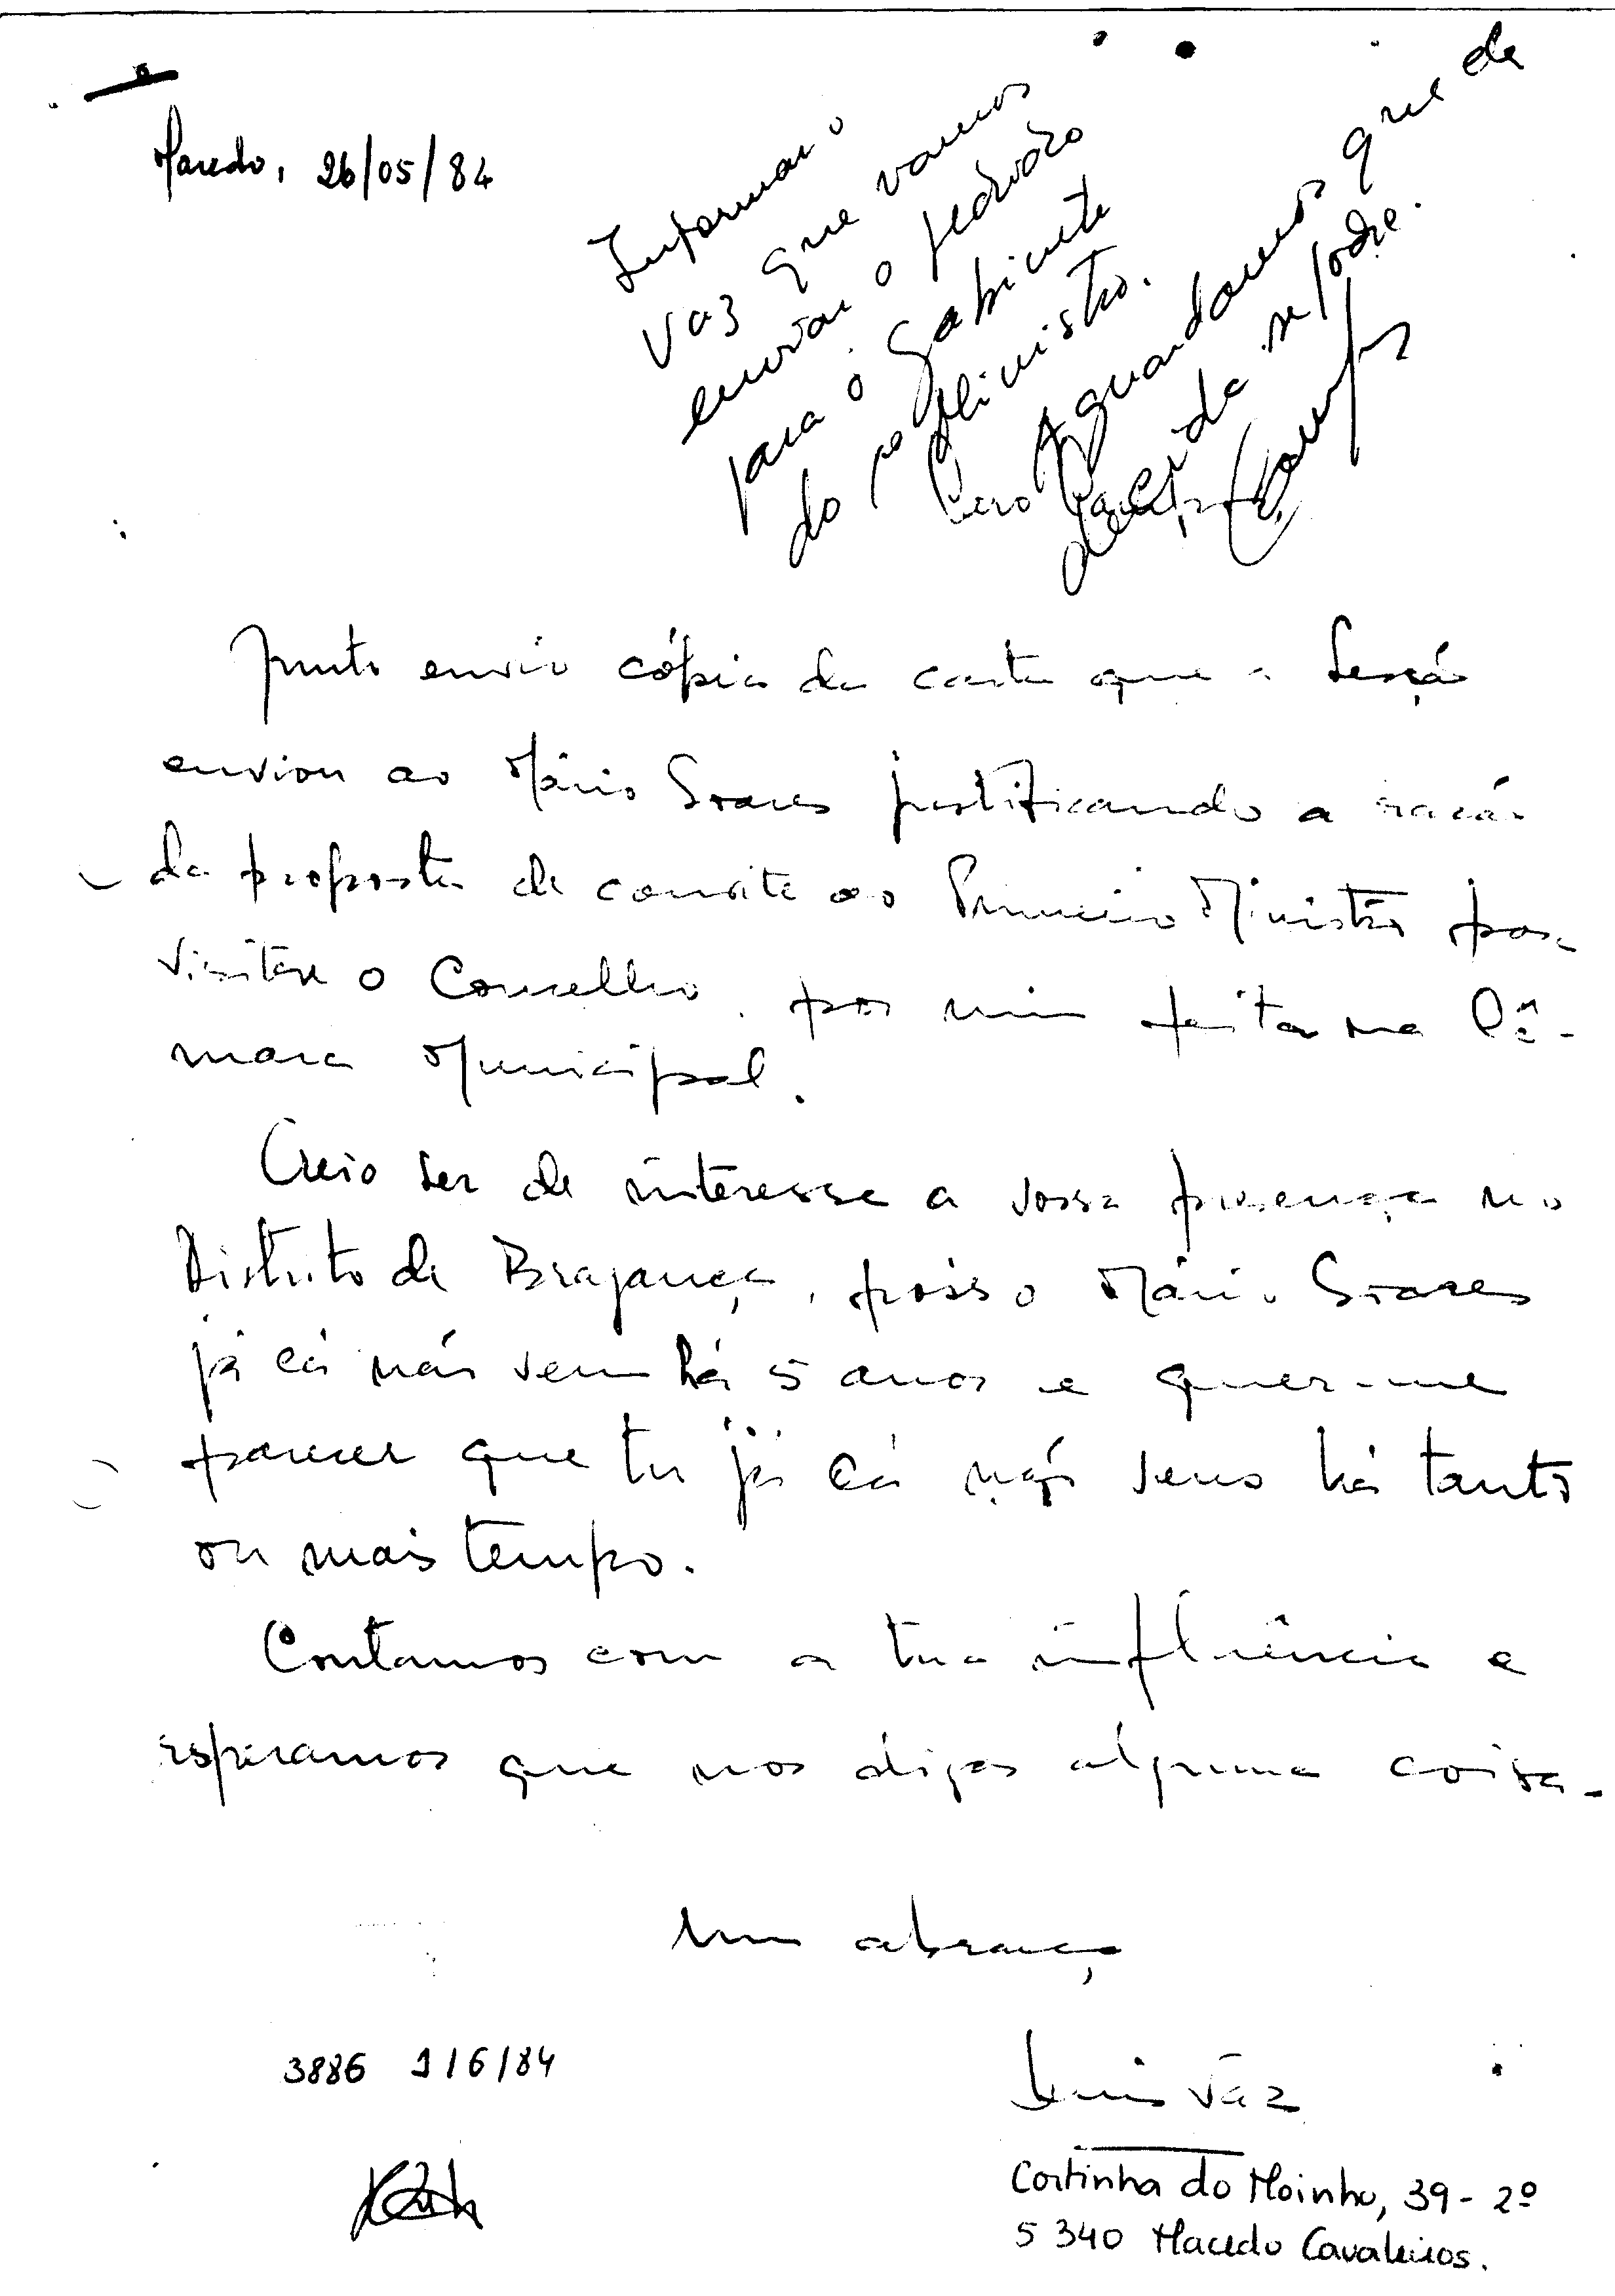 Macedo, 26/05/84
Informar o
Vaz que vamos
enviar o
para o Gabinete
do 1º Ministro.
Aguardamos que de
decida se
Junto envio cópia da carta que a Secção
enviou ao Mário Soares justificando a razão
da proposta de convite ao Primeiro Ministro para
visitar o Concelho, por mim feita na Câ-
mara Municipal.
Creio ser de interesse a vossa presença no
Distrito de Bragança, pois o Mário Soares
já cá não vem há 5 anos e quer-me
parecer que tu já cá não vens há tanto
ou mais tempo.
Contamos com a tua influência e
esperamos que nos digas alguma coisa.
Um abraço
Luis Vaz
3886 1/6/84
Cortinha do Moinho, 39-2º
5340 Macedo Cavaleiros.